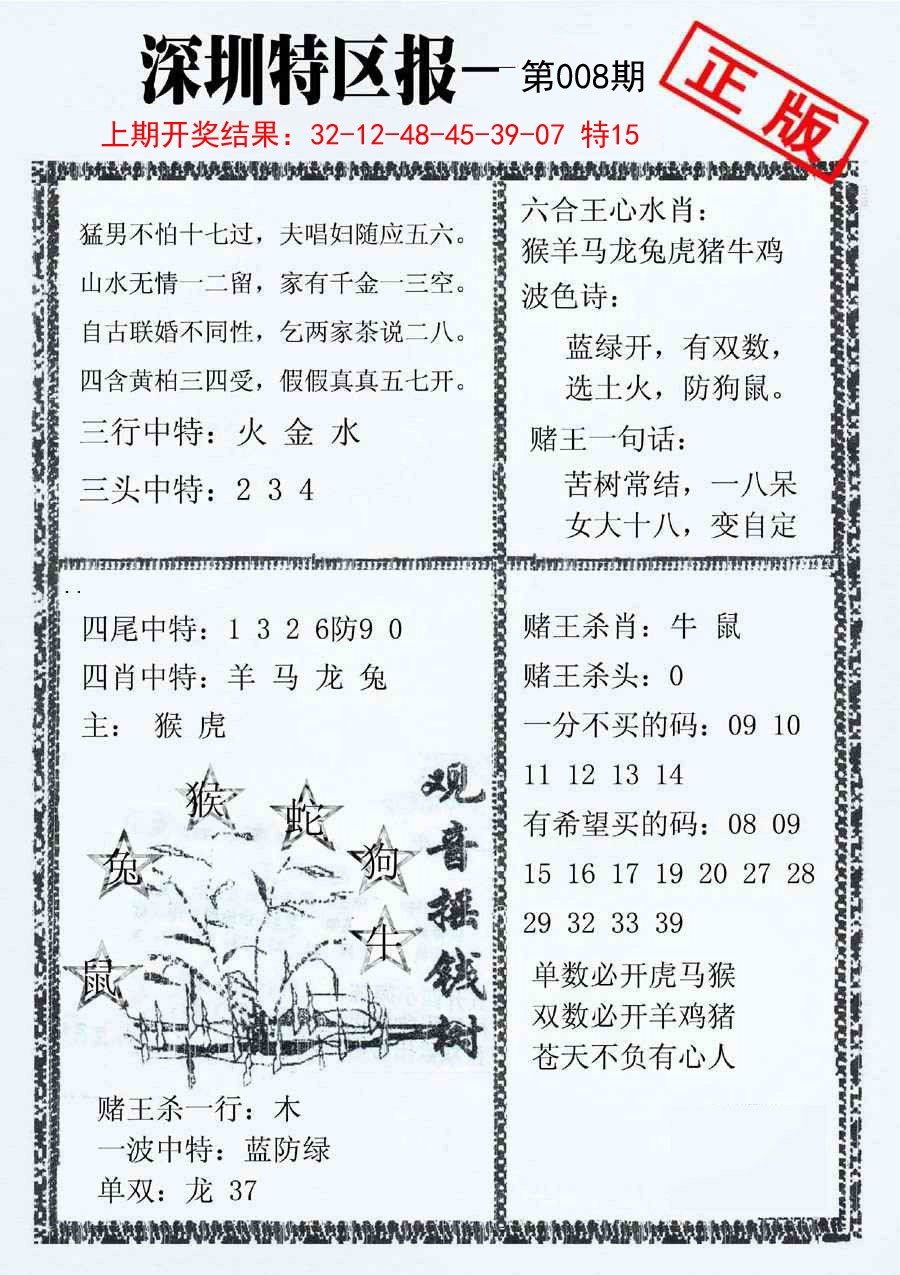 深圳特区报—
第008期
正版
上期开奖结果：32-12-48-45-39-07 特15
猛男不怕十七过，夫唱妇随应五六。
山水无情一二留，家有千金一三空。
自古联婚不同性，乞两家茶说二八。
四含黄柏三四受，假假真真五七开。
三行中特：火 金 水
三头中特：2 3 4
六合王心水肖：
猴羊马龙兔虎猪牛鸡
波色诗：
蓝绿开，有双数，
选土火，防狗鼠。
赌王一句话：
苦树常结，一八呆
女大十八，变自定
四尾中特：1 3 2 6防9 0
四肖中特：羊 马 龙 兔
主： 猴 虎
猴
蛇
兔
狗
牛
鼠
观音摇钱树
赌王杀一行：木
一波中特：蓝防绿
单双：龙 37
赌王杀肖：牛 鼠
赌王杀头：0
一分不买的码：09 10
11 12 13 14
有希望买的码：08 09
15 16 17 19 20 27 28
29 32 33 39
单数必开虎马猴
双数必开羊鸡猪
苍天不负有心人